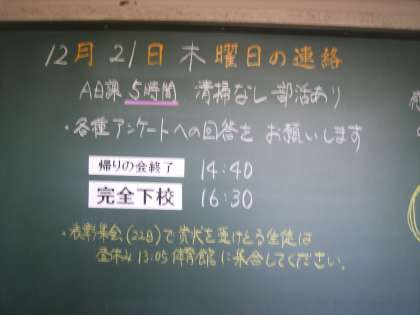 12月21日木曜日の連絡
A日課 5時間 清掃なし 部活あり
・各種アンケートへの回答をお願いします
帰りの会終了 14:40
完全下校 16:30
・表彰集会(22日)で賞状を受けとる生徒は
昼休み 13:05 体育館に集合してください。